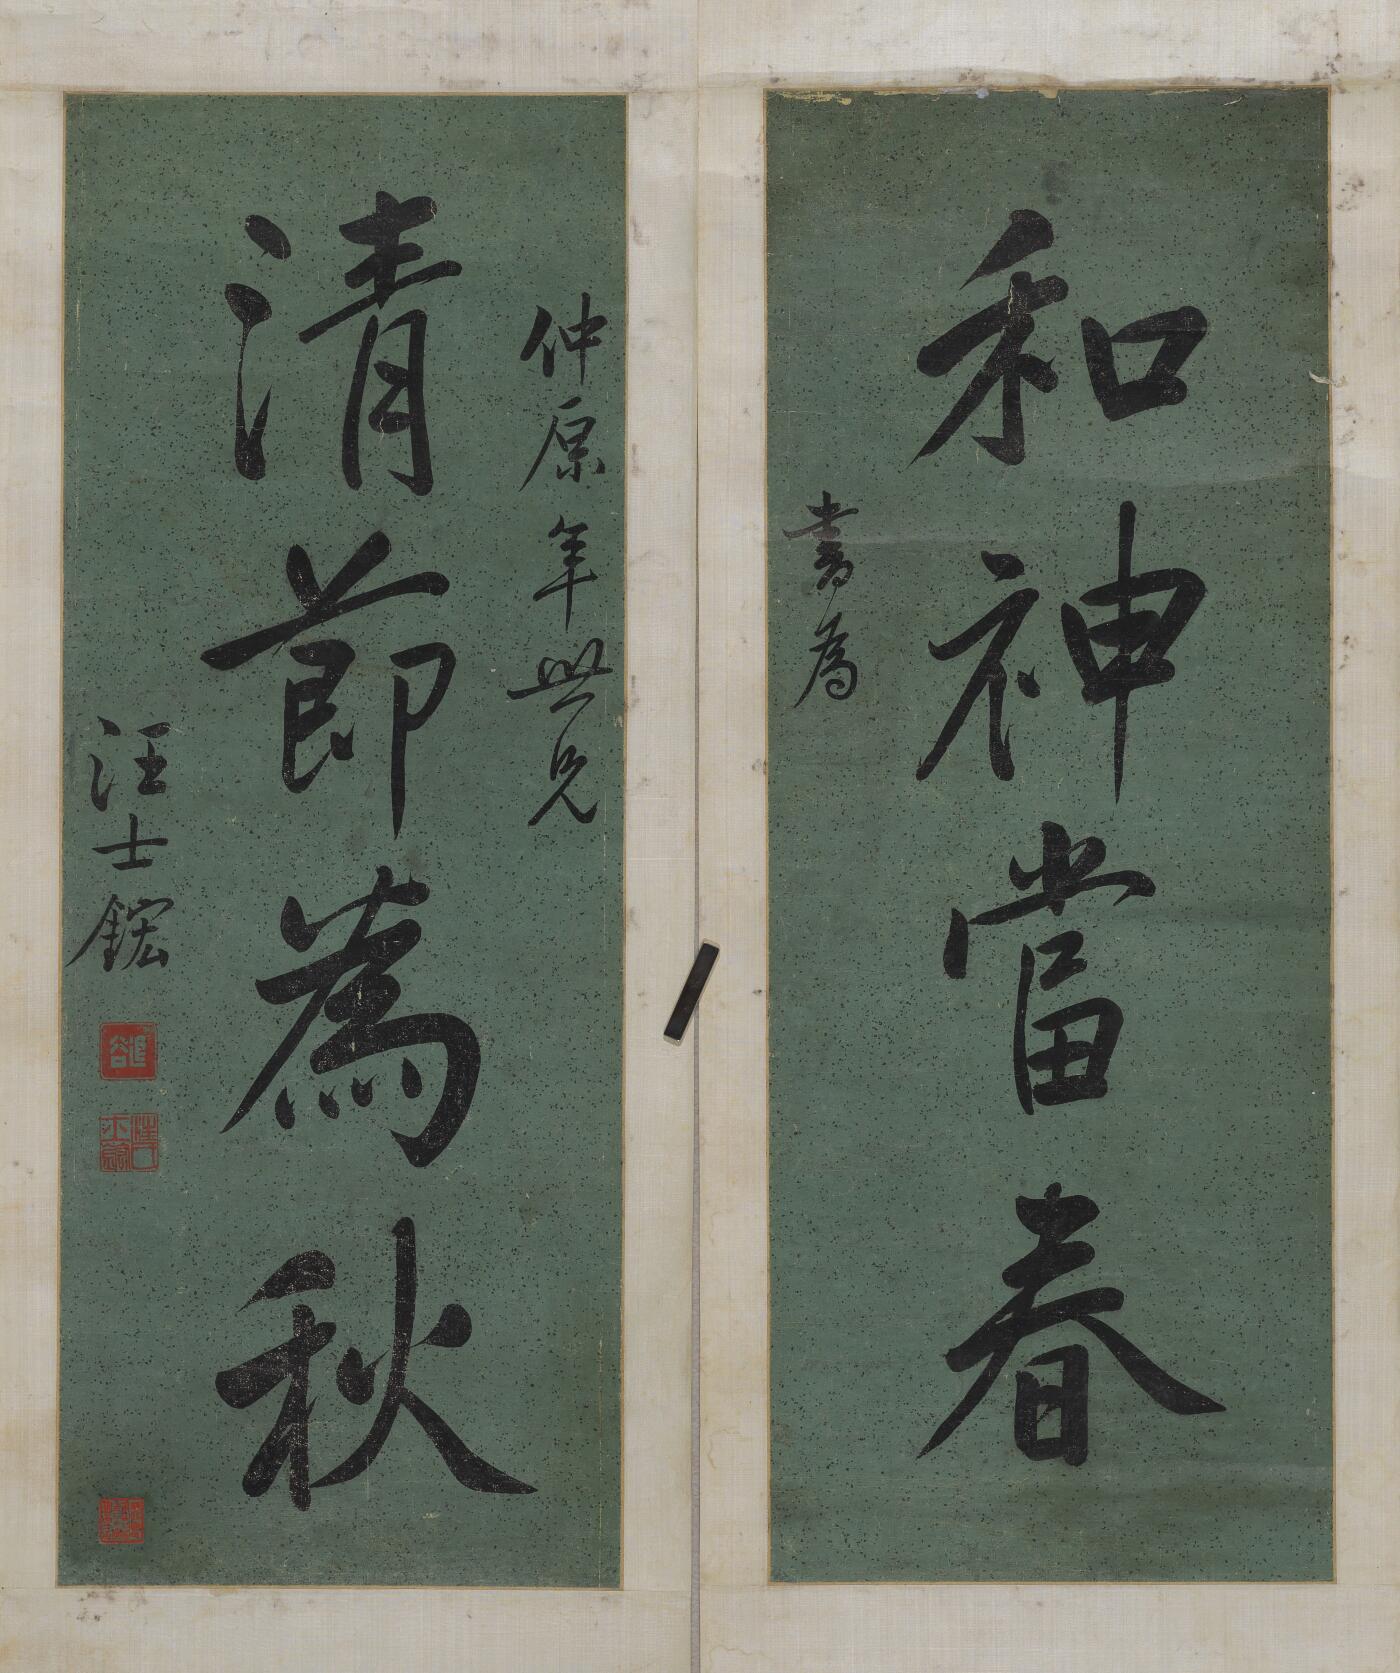 和神當春
書為
仲原年世兄
清節為秋
汪士鋐
退谷